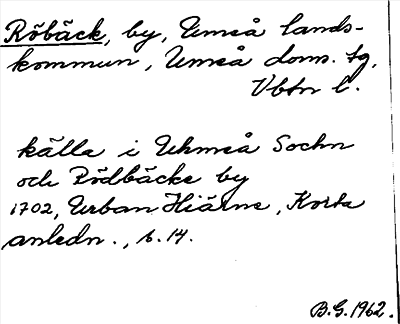 Röbäck, by, Umeå lands-
kommun, Umeå doms. tg,
Vbtn l.
källa i Uhmeå Sochn
och Rödbäcks by
1702, Urban Hiärne, Korta
anledn., s. 14.
B.G. 1962.